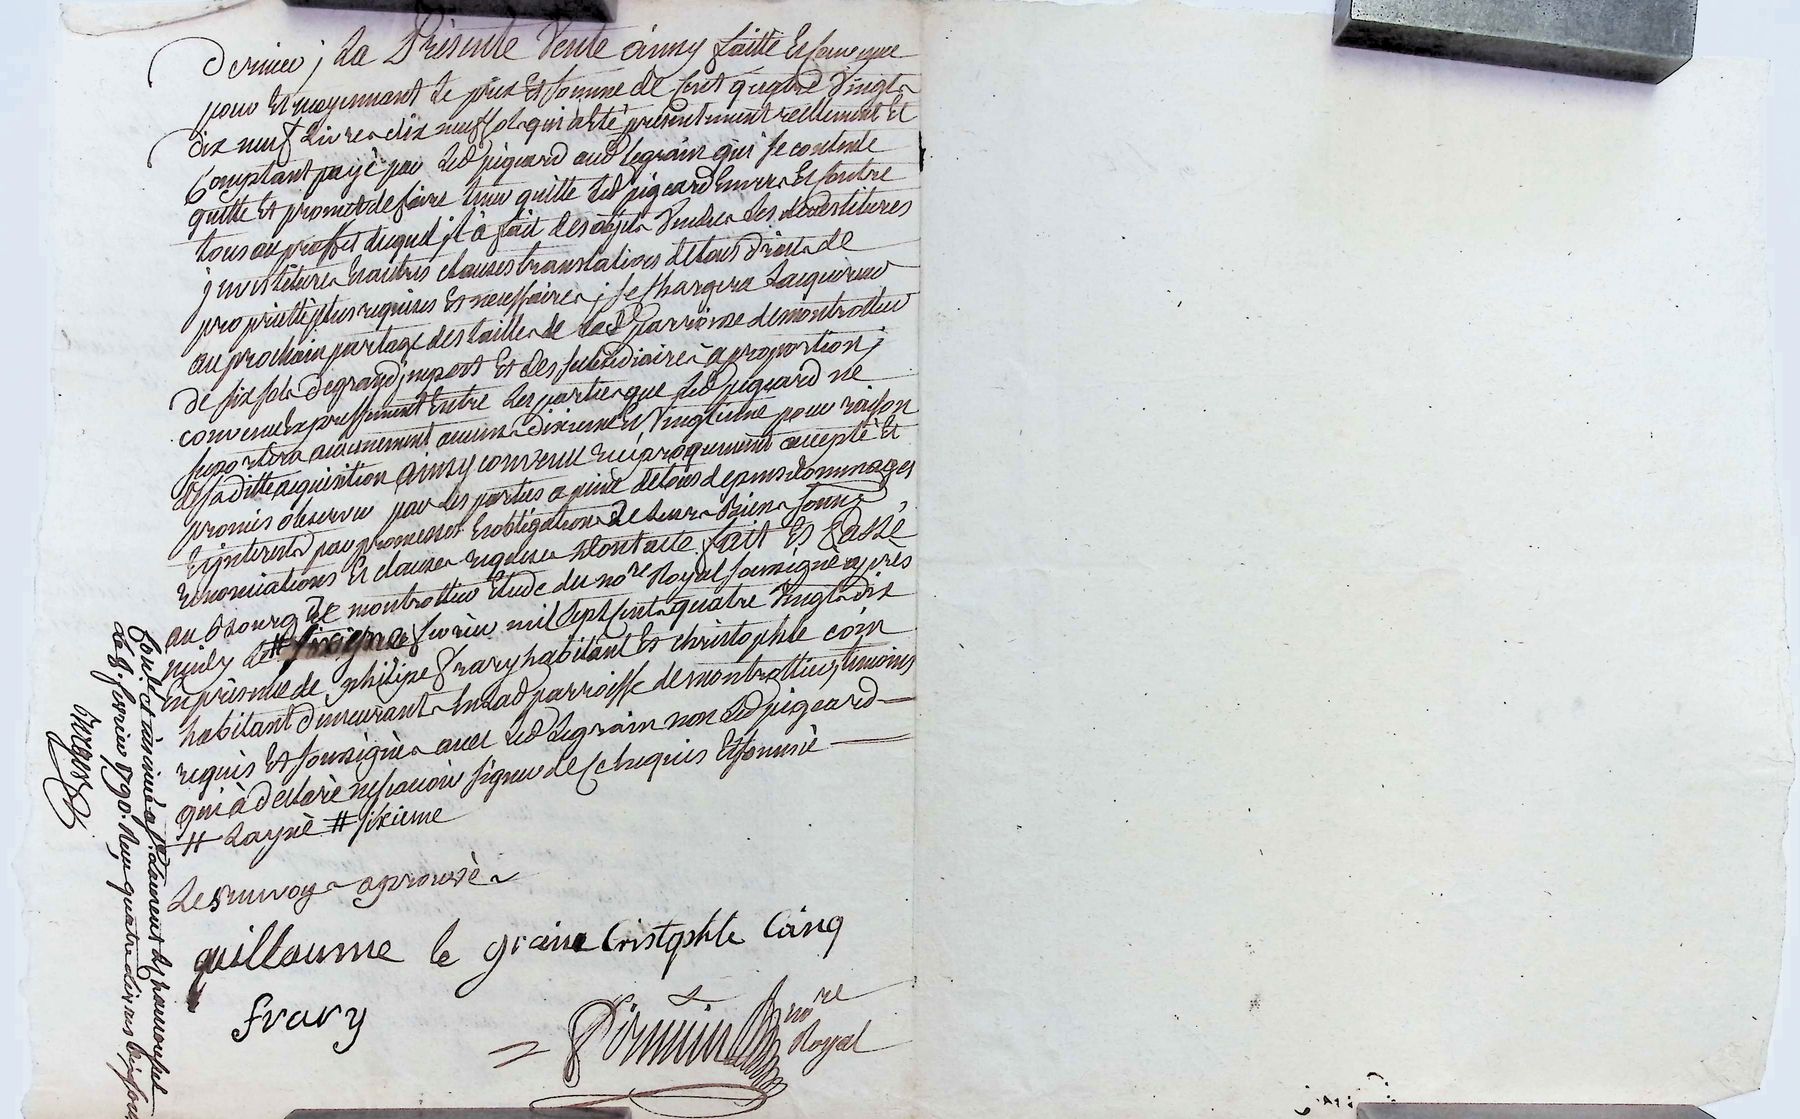 dernier ; La Presente Vente ainsy faitte Es
pour Et moyennant le prix Et somme de Cent quatre Vingt
dix neuf Livres dix neuf sols qui a eté presentement reellement Et
Comptant payé par Led pigeard aud legrain qui se contente
quitte Et promet de faire tenir quitte led pigeard Envers Et Contre
tous au proffit duquel jl à fait des les devestitures
jnvestitures Et autres clauses translatives de tous droits de
proprieté plus requises Et necessaires ; se Chargera Lacquereur
au prochain partage des tailles de lad parroisse de montrottier
de six sols de grand jmpost Et des subsidiaires à proportion ;
convenu Expressement Entre les parties que led pigeard ne
suportera aucunement aucuns dixieme Et Vingtieme pour raison
de sa ditte acquisition ainsy convenu reciproquement accepté Et
promis observer par les parties a peine de tous depens dommages
Et jnterests par promesses Et obligations de leurs Biens soumis
renonciations Et clauses requises dont acte fait Et Passé
au Bourg de montrottier Etude du nore Royal soussigné après
midy le # fevrier mil sept Cent quatre Vingt dix
En presence de philipe frary habitant Et christophle coin
habitant demeurants En lad parroisse de montrottier, temoins
requis Et soussignés avec led Legrain non led pigeard
qui à declaré ne sçavoir signer de Ce Enquis Et sommé
# Rayé # sixieme
Les renvoys aprouvés
guillaume le grain Cristophle Coinq
frary
nore
Royal
Conlé et insinué a St Laurent de chamousset
Le 8. fevrier 1790. Reçu quatre livres